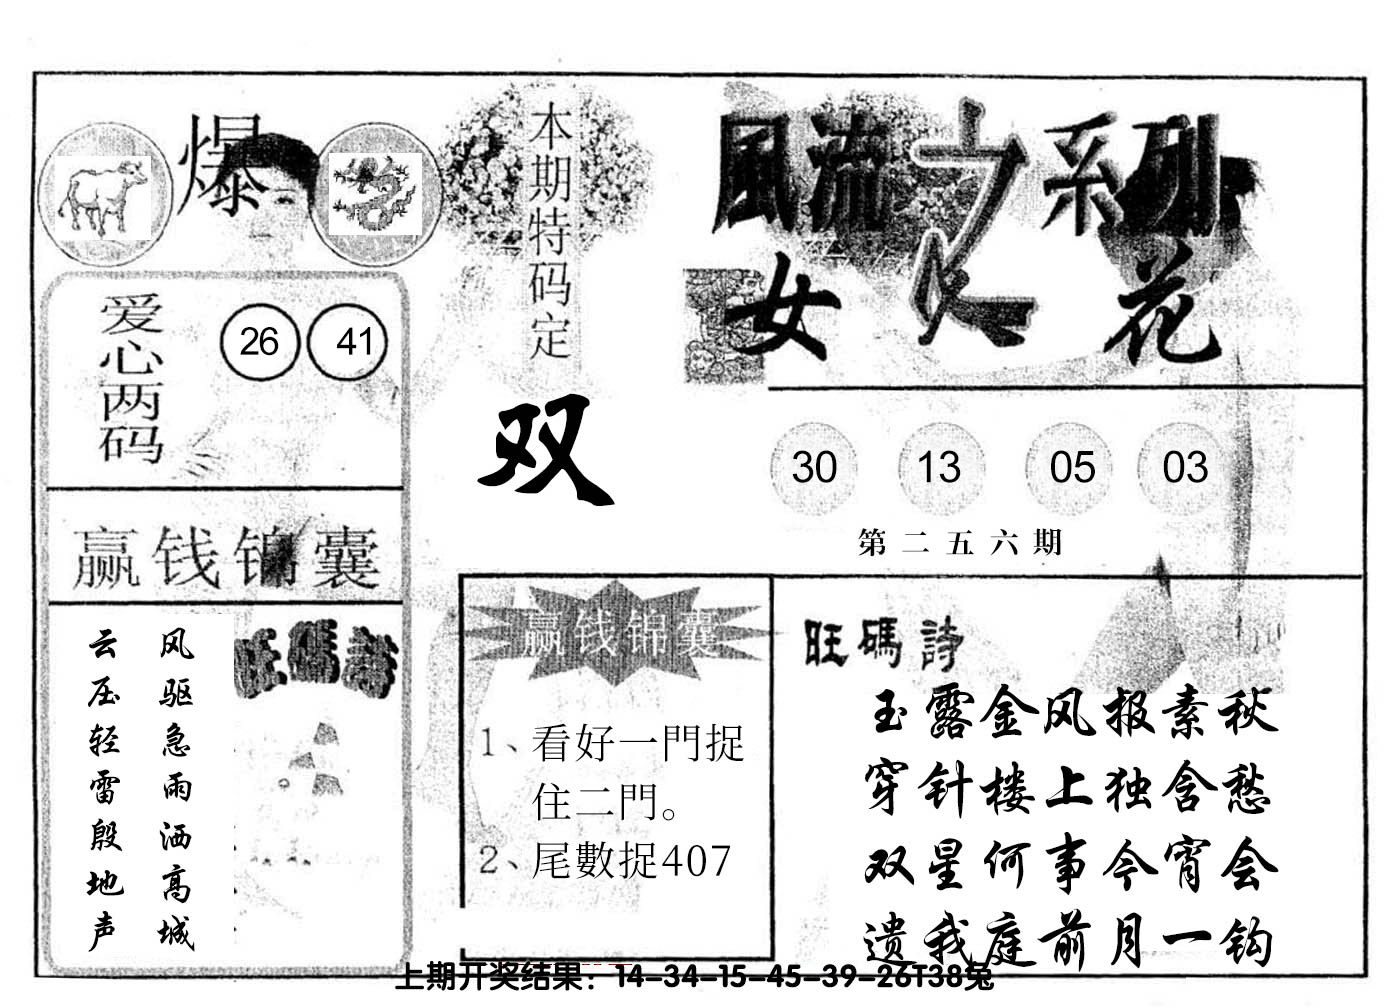 爆
本期特码定
双
風流之系列
女人花
爱心两码
26 41
30 13 05 03
第二五六期
赢钱锦囊
风驱急雨洒高城
云压轻雷殷地声
旺碼詩
赢钱锦囊
1、看好一門捉
住二門。
2、尾數捉407
旺碼詩
玉露金风报素秋
穿针楼上独含愁
双星何事今宵会
遗我庭前月一钩
上期开奖结果：14-34-15-45-39-26T38兔